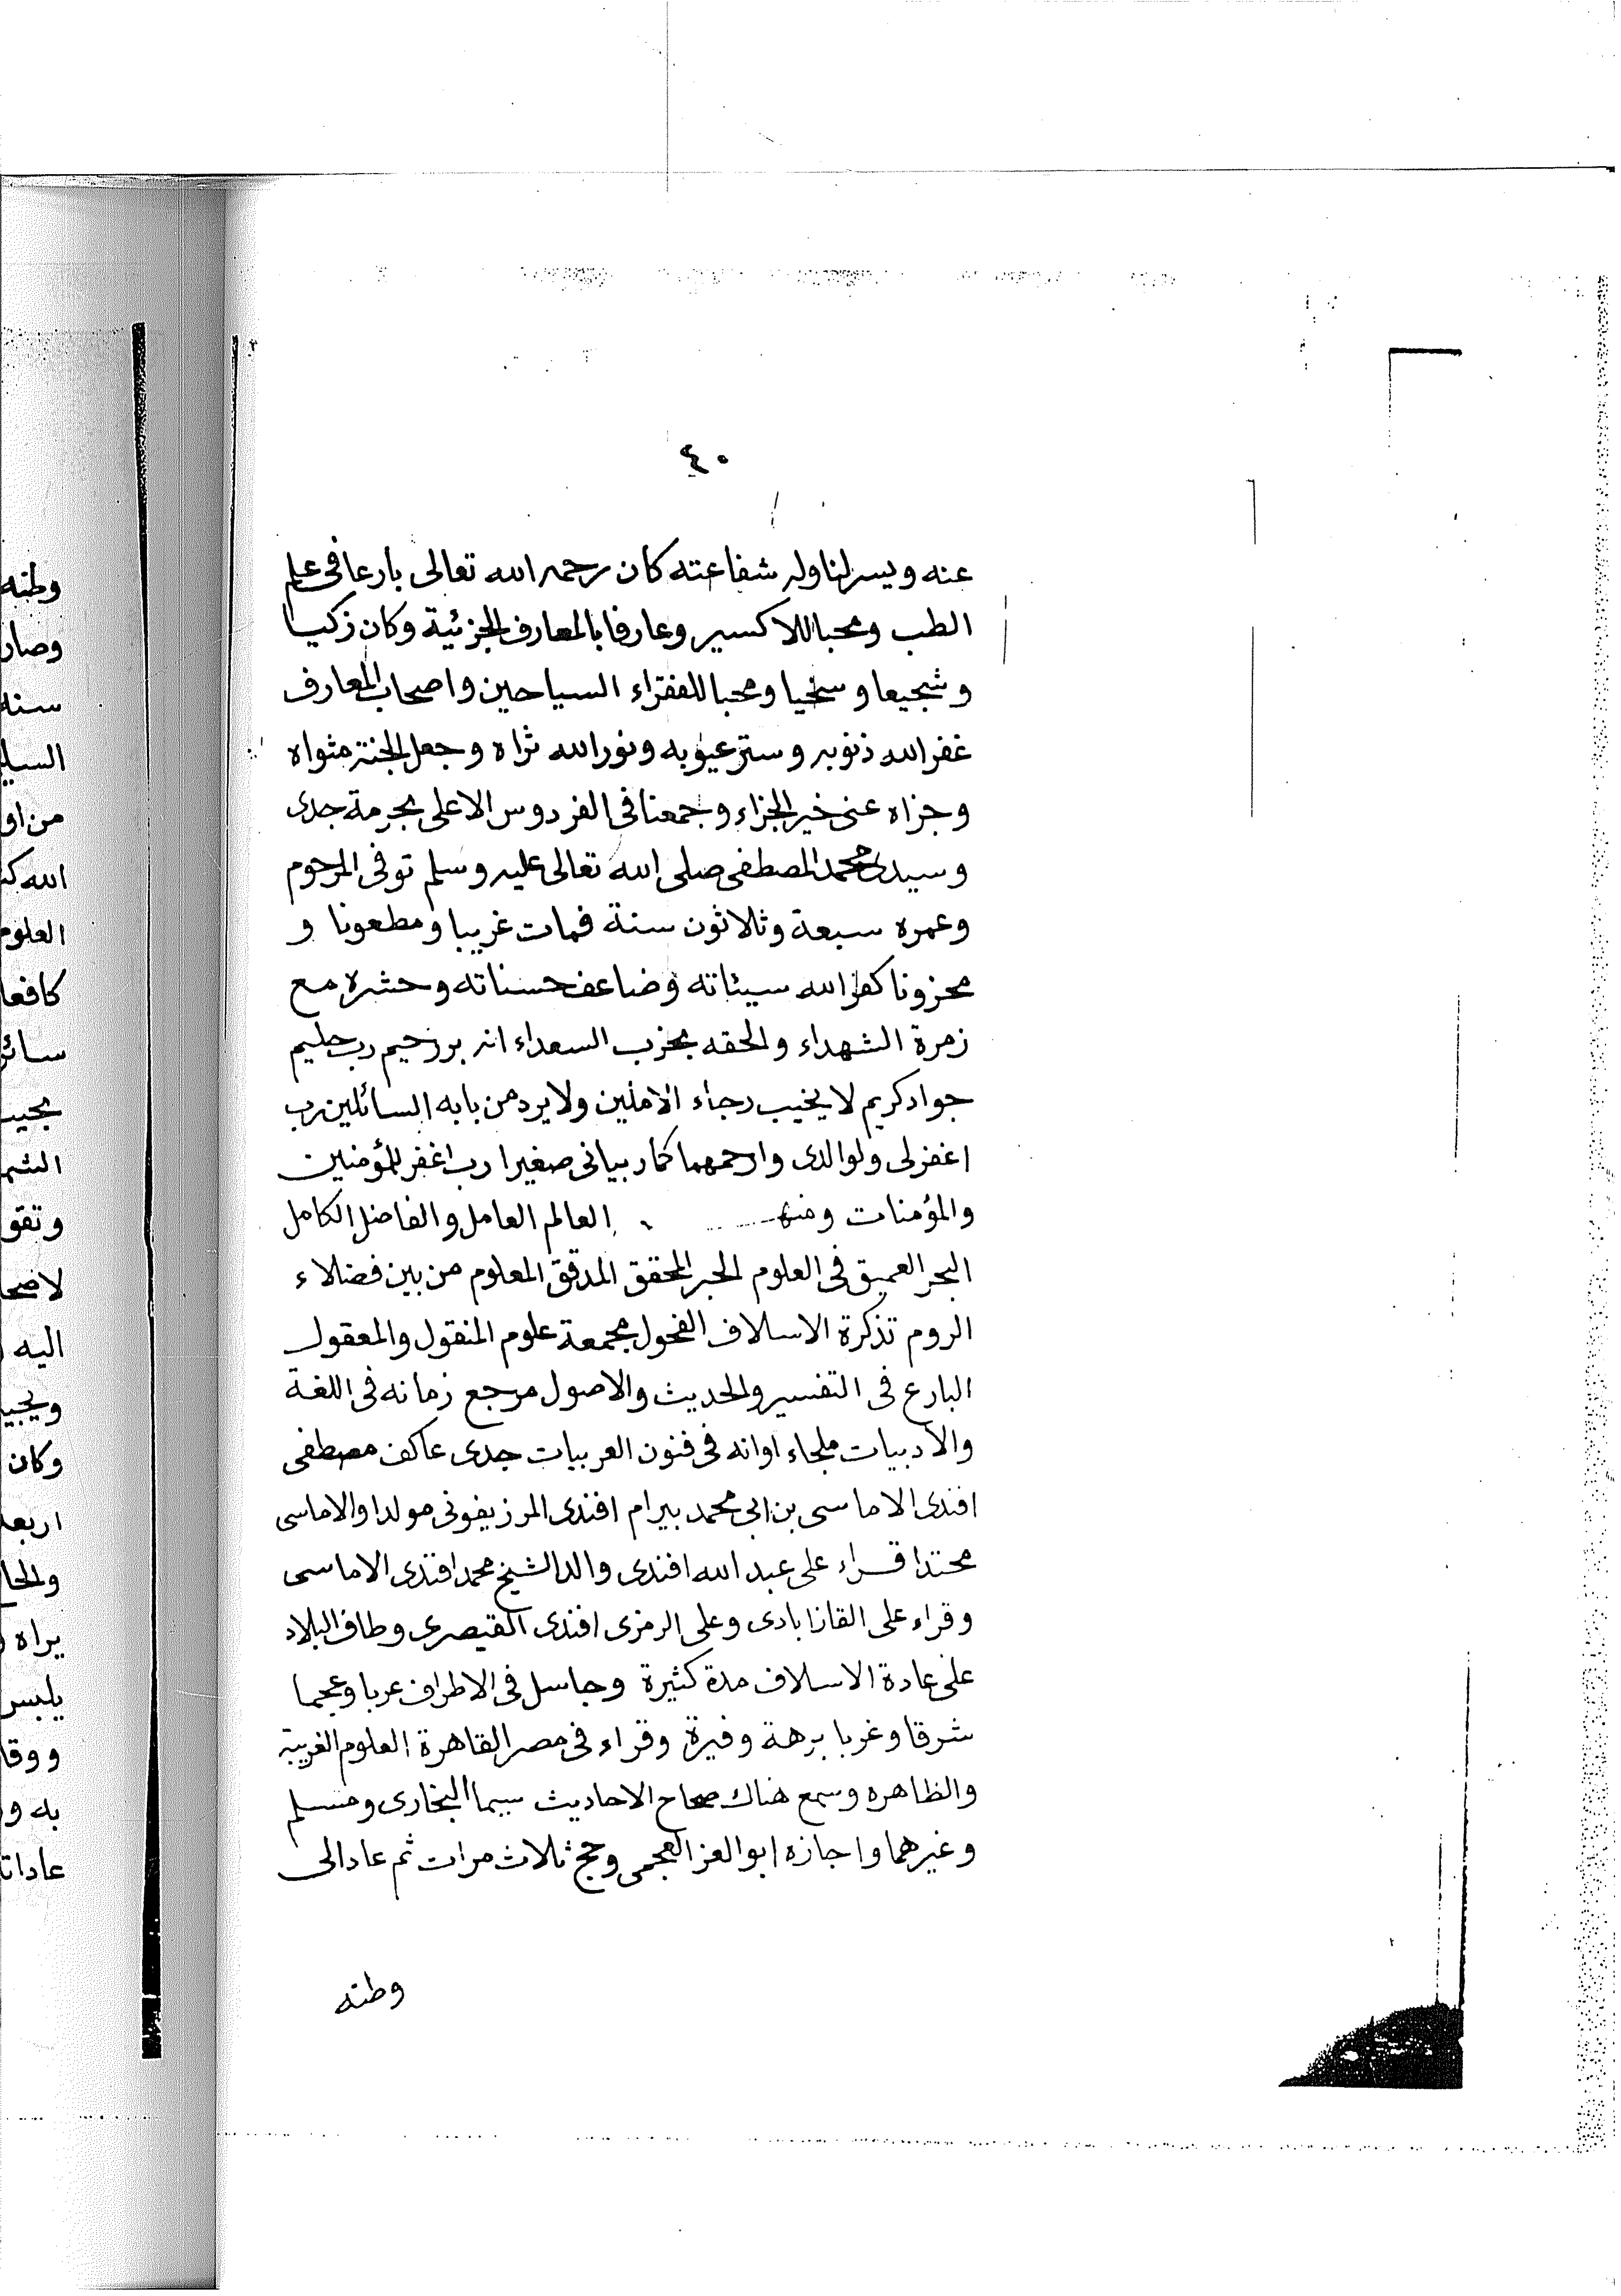 ٤٠
عنه ويسر لنا وله شفاعته كان رحمه الله تعالى بارعا فى علم
الطب ومحبا للاكسير وعارفا بالمعارف الجزئية وكان زكيا
وشجيعا وسخيا ومحبا للفقراء السياحين واصحاب المعارف
غفر الله ذنوبه وستر عيوبه ونور الله ثراه وجعل الجنة مثواه
وجزاه عنى خير الجزاء وجمعنا فى الفردوس الاعلى بحرمة جدى
وسيدى محمد المصطفى صلى الله تعالى عليه وسلم توفى المرحوم
وعمره سبعة وثلاثون سنة فمات غريبا ومطعونا و
محزونا كفر الله سيئاته وضاعف حسناته وحشره مع
زمرة الشهداء والحقه بحزب السعداء انه بر رحيم رب حليم
جواد كريم لا يخيب رجاء الاملين ولا يرد من بابه السائلين رب
اغفر لى ولوالدى وارحمهما كما ربيانى صغيرا رب اغفر للمؤمنين
والمؤمنات ومنهم العالم العامل والفاضل الكامل
البحر العميق فى العلوم الحبر المحقق المدقق المعلوم من بين فضلاء
الروم تذكرة الاسلاف الفحول مجمعة علوم المنقول والمعقول
البارع فى التفسير والحديث والاصول مرجع زمانه فى اللغة
والادبيات ملجاء اوانه فى فنون العربيات جدى عاكف مصطفى
افندى الاماسى بن ابى محمد بيرام افندى المرزيفونى مولدا والاماسى
محتدا قراء على عبد الله افندى والد الشيخ محمد افندى الاماسى
وقراء على القازابادى وعلى الرمزى افندى القيصرى وطاف البلاد
على عادة الاسلاف مدة كثيرة وجاسل فى الاطراف عربا وعجما
شرقا وغربا برهة وفيرة وقراء فى مصر القاهرة العلوم الغريبة
والظاهره وسمع هناك صحاح الاحاديث سيما البخارى ومسلم
وغيرهما واجازه ابو العز العجمى وحج ثلاث مرات ثم عاد الى
وطنه
وطنه
وصار
سنة
من او
العلوم
سائر
اليه
وكان
يراه
يلبس
به و